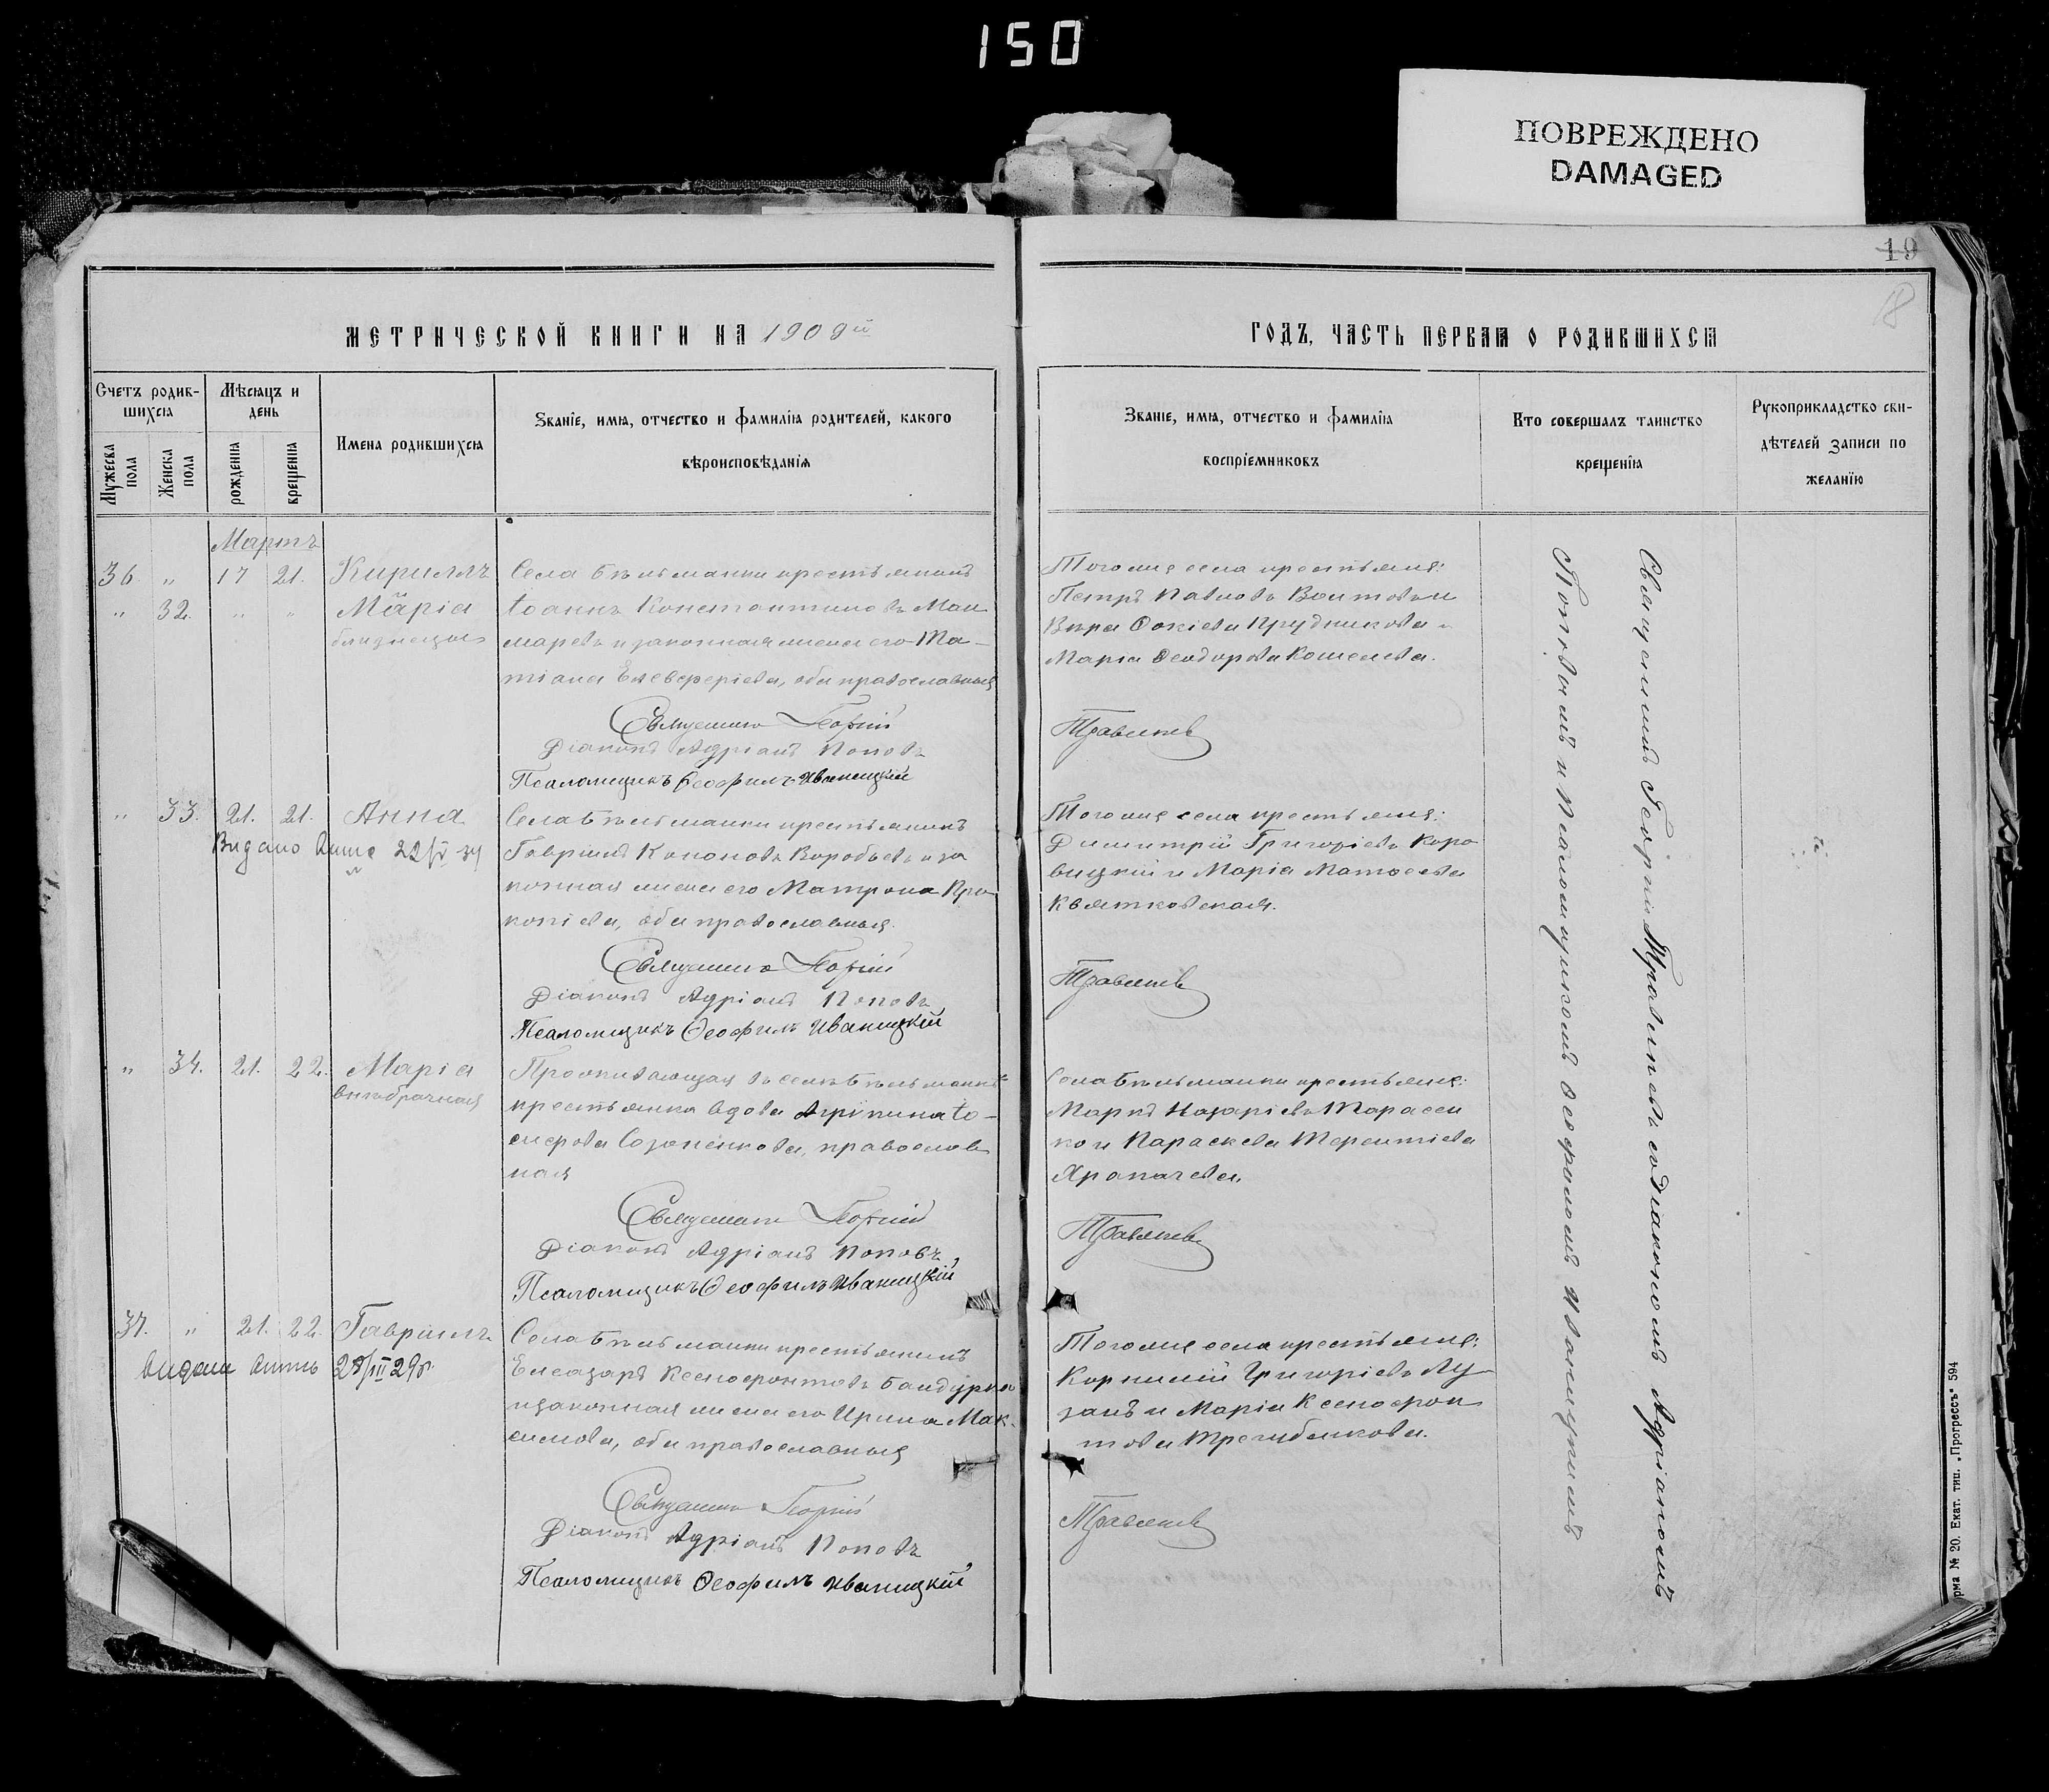 150
ПОВРЕЖДЕНО
DAMAGED
19
18
МЕТРИЧЕСКОЙ КНИГИ НА 1909й
ГОДЪ, ЧАСТЬ ПЕРВАЯ О РОДИВШИХСЯ
Счетъ родив-
шихся
Мужеска пола
Женска пола
Мѣсяцъ и
день
рожденія
крещенія
Имена родившихся
Званіе, имя, отчество и фамилія родителей, какого
вѣроисповѣданія
Званіе, имя, отчество и фамилія
воспріемниковъ
Кто совершалъ таинство
крещенія
Рукоприкладство сви-
дѣтелей записи по
желанію
Мартъ
36. " 17 21. Кириллъ
" 32. " " Марія
близнецы
Села Бѣльманки крестьянинъ
Іоаннъ Константиновъ
и законная жена его Та-
тіана Елевферіева, оба православныя
Священникъ Георгій
Діаконъ Адріанъ Поповъ
Псаломщикъ Ѳеофилъ Иваницкій
Того же села крестьяне:
Петръ Павловъ и
Вѣра Фокіева Прудникова и
Марія Ѳеодорова Кошелева.
Травлевъ
" 33. 21. 21. Анна
Видано
Села Бѣльманки крестьянинъ
Гавріилъ Кононовъ Воробьевъ и за
конная жена его Матрона Про-
копіева, оба православныя.
Священникъ Георгій
Діаконъ Адріанъ Поповъ
Псаломщикъ Ѳеофилъ Иваницкій
Того же села крестьяне:
Димитрій Григоріевъ Коро
вицкій и Марія Матѳеева
Квятковская.
Травлевъ
" 34. 21. 22. Марія
внѣбрачная
Проживающая въ селѣ Бѣльманкѣ
крестьянка вдова Агрипина Іо-
сифова Созоненкова, православ
ная
Священникъ Георгій
Діаконъ Адріанъ Поповъ
Псаломщикъ Ѳеофилъ Иваницкій
Села Бѣльманки крестьяне:
Маркъ Назаріевъ Тарасен
ко и Параскева Терентіева
Храпачева.
Травлевъ
37. " 21. 22. Гавріилъ
28/III 29р.
Села Бѣльманки крестьянинъ
Елеазаръ Ксенофонтовъ Бандурко
и законная жена его Ирина Мак-
симова, оба православныя
Священникъ Георгій
Діаконъ Адріанъ Поповъ
Псаломщикъ Ѳеофилъ Иваницкій
Того же села крестьяне:
Корнилій Григоріевъ Лу-
занъ и Марія Ксенофон
това
Травлевъ
Священникъ Георгій Травлевъ съ діакономъ Адріаномъ
Поповымъ и псаломщикомъ Ѳеофиломъ Иваницкимъ
рма № 20. Екат. тип. „Прогрессъ" 594